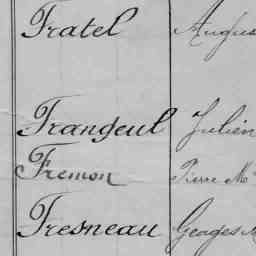 Fratel Augus
Frangeul Julien
Fremon Pierre Me
Fresneau Georges